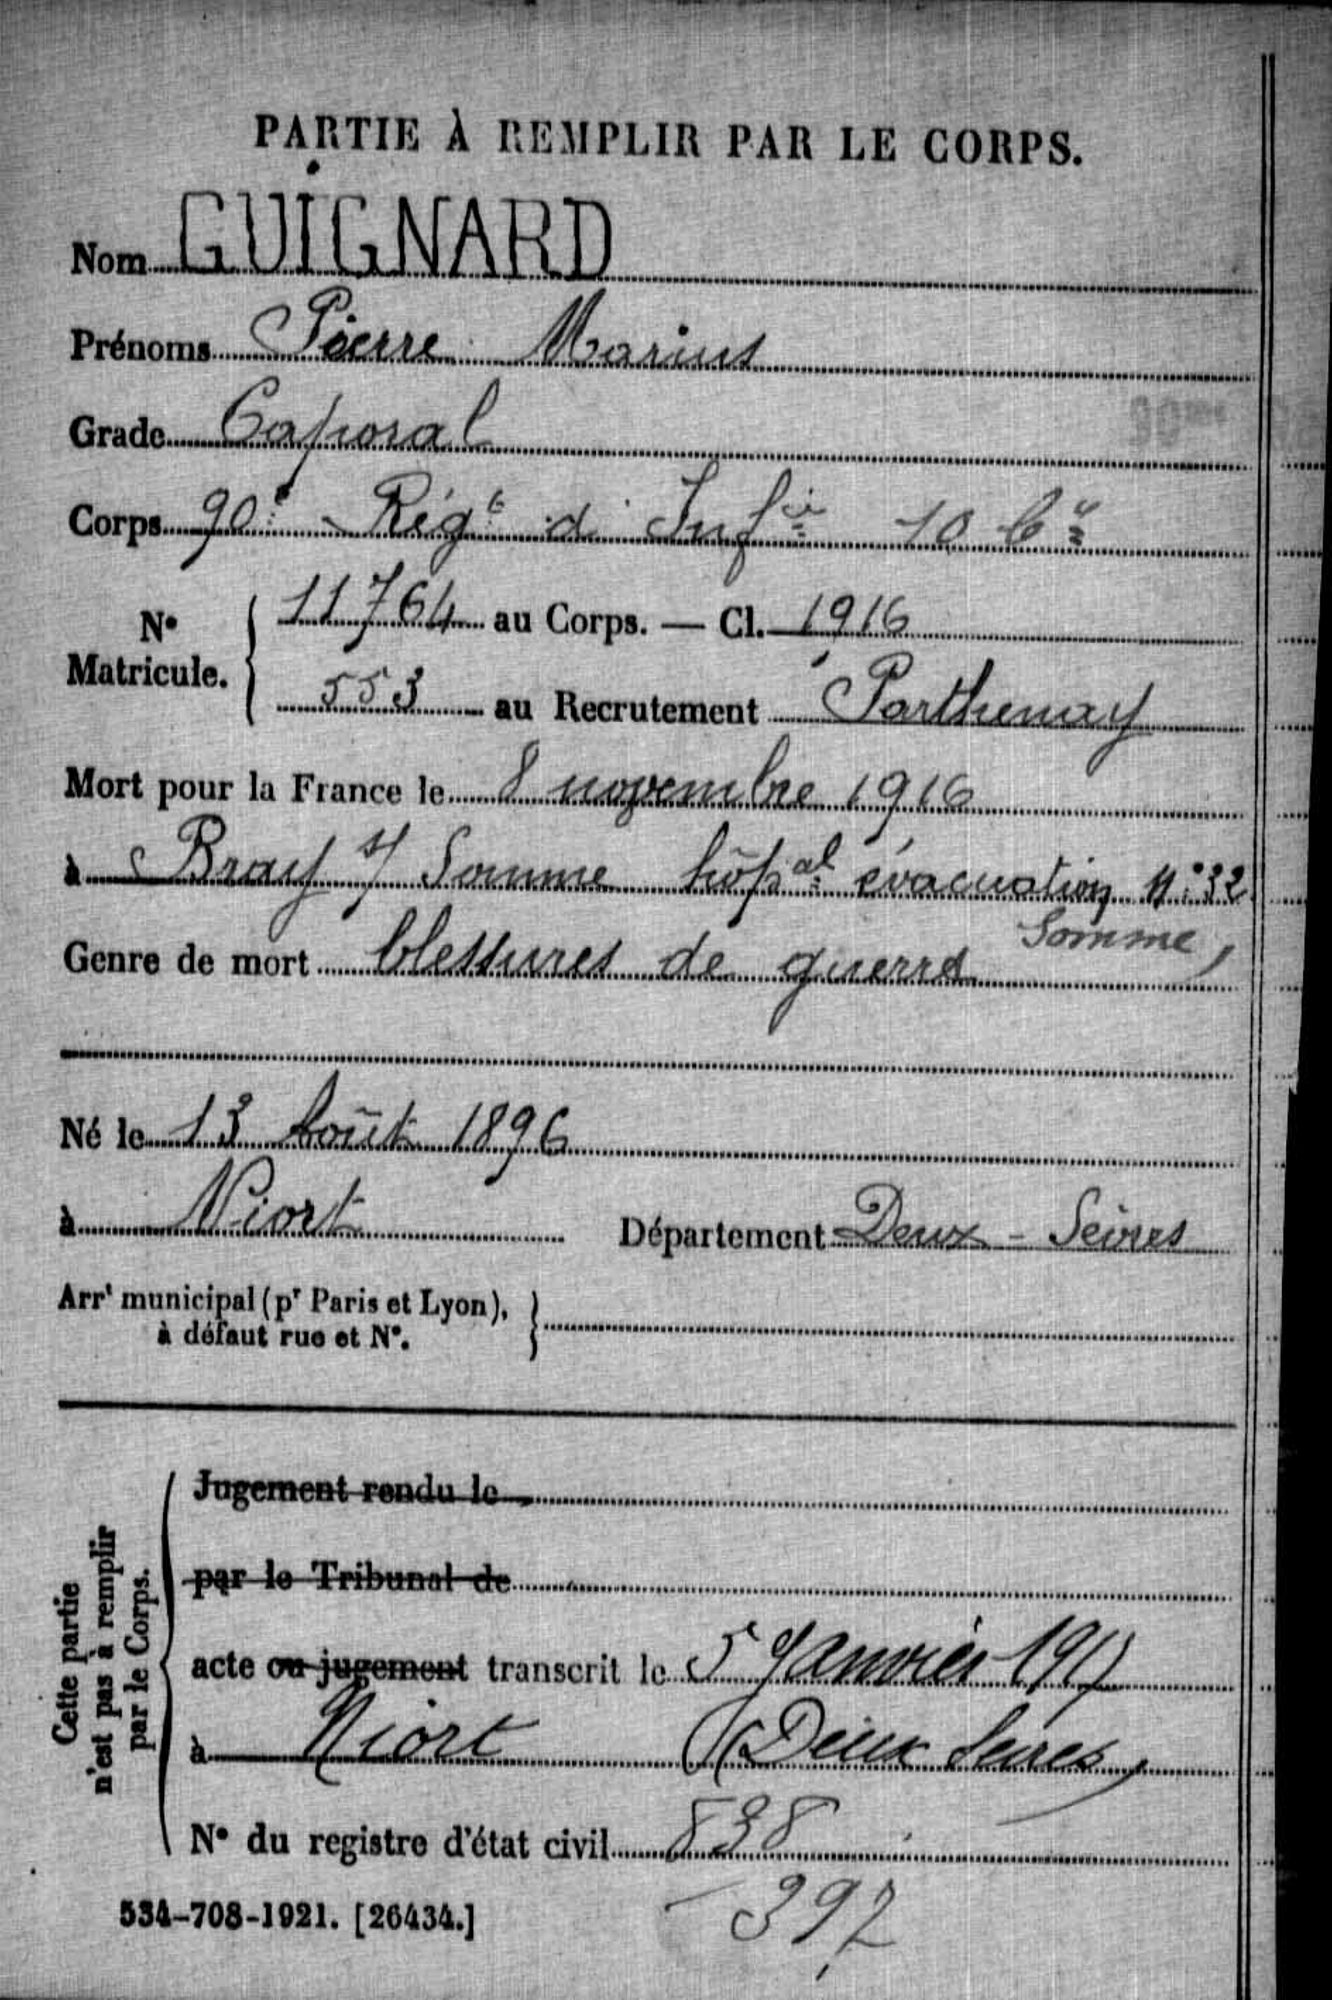 PARTIE À REMPLIR PAR LE CORPS.
Nom GUIGNARD
Prénoms Pierre Marius
Grade Caporal
90me
Corps 90e Régt d' Infie 10 Cie
No Matricule. 11764 au Corps. — Cl. 1916
553 au Recrutement Parthenay
Mort pour la France le 8 novembre 1916
à Bray s/ Somme hôpal évacuation No 32
Somme,
Genre de mort blessures de guerre
Né le 13 Août 1896
à Niort Département Deux-Sèvres
Arrt municipal (pr Paris et Lyon),
à défaut rue et No.
Cette partie
n'est pas à remplir
par le Corps.
Jugement rendu le
par le Tribunal de
acte ou jugement transcrit le 5 Janvier 1917
à Niort (Deux Sèvres)
No du registre d'état civil 838
534-708-1921. [26434.]
397